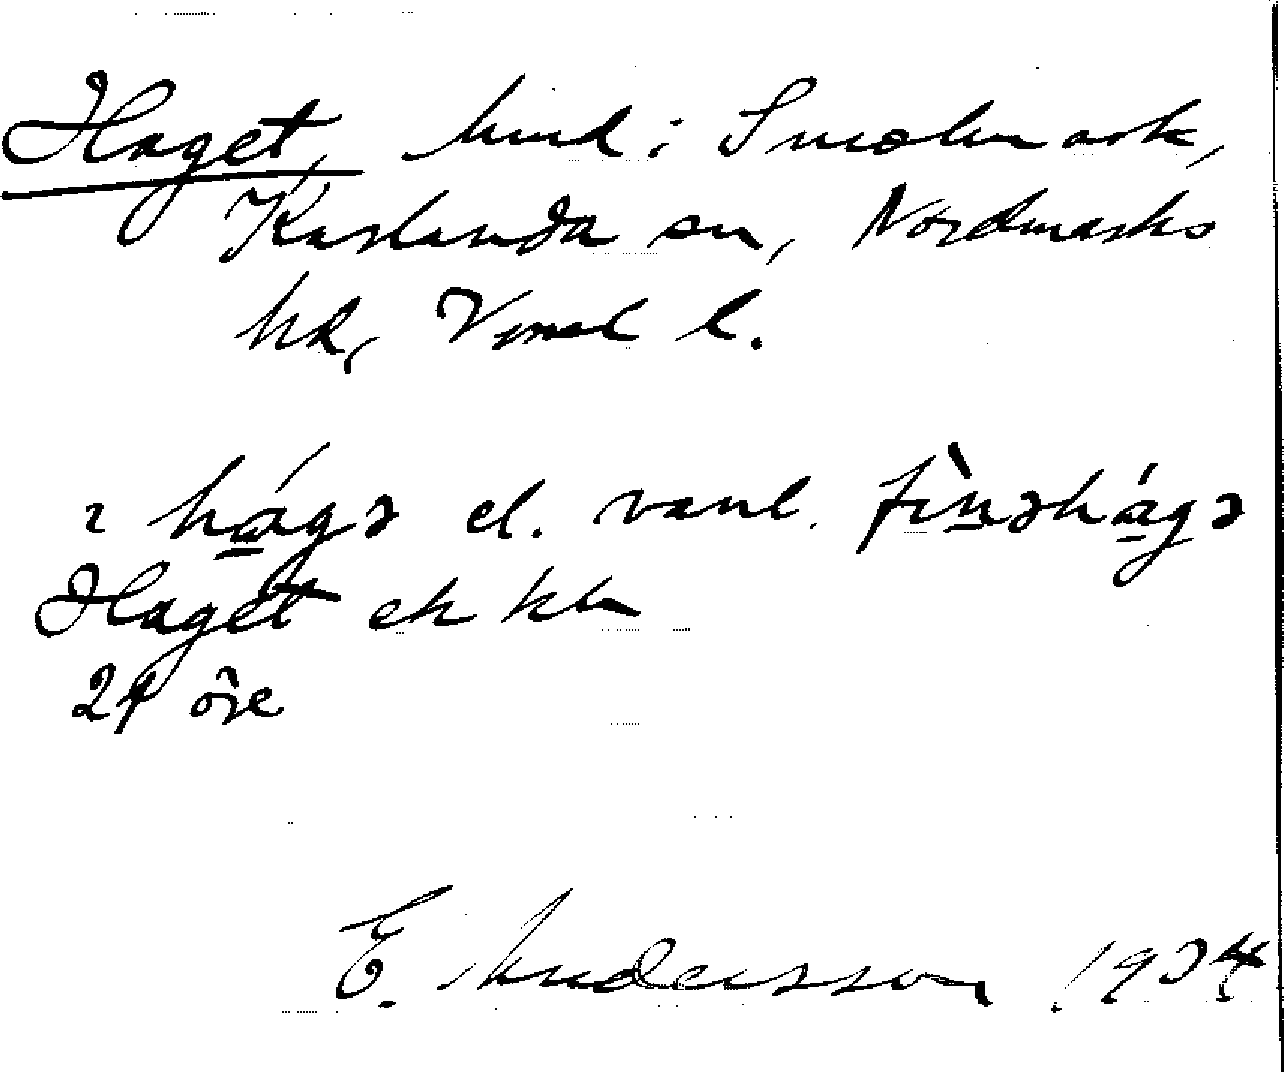 Haget, hmd i Smolmark,
Karlanda sn, Nordmarks
hd, Vrml l.
ı hágə el. vanl. fìnəhágə
Haget ek kln
24 öre
E. Andersson 1924